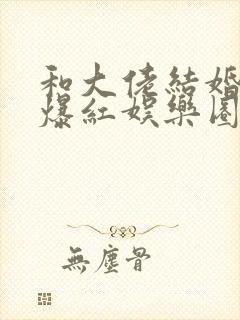 和大佬結婚
爆紅娛樂圈
無塵骨